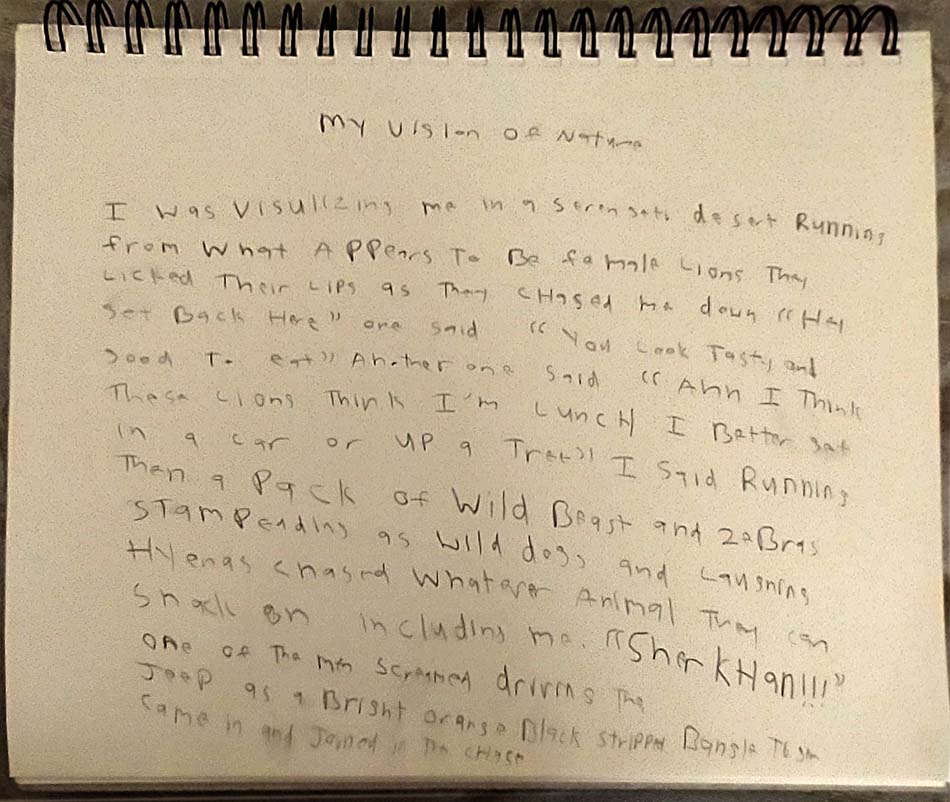 My Vision of Nature
I was Visulizing me in a serengeti desert Running
from What Appears To Be female Lions They
Licked Their Lips as They cHased me down "Hey
Get Back Here" one said "You Look Tasty and
good To eat" Another one said "Ahh I Think
These Lions Think I'm LuncH I Better get
in a car or up a Tree" I Said Running
Then a Pack of Wild Beast and zeBras
STamPeading as wild dogs and Laughing
Hyenas chased Whatever Animal They can
Snack on including me. "Sher KHan!!!"
one of The men screamed driving The
Jeep as a Bright orange Black stripped Bangle Tiger
came in and Joined in The cHase